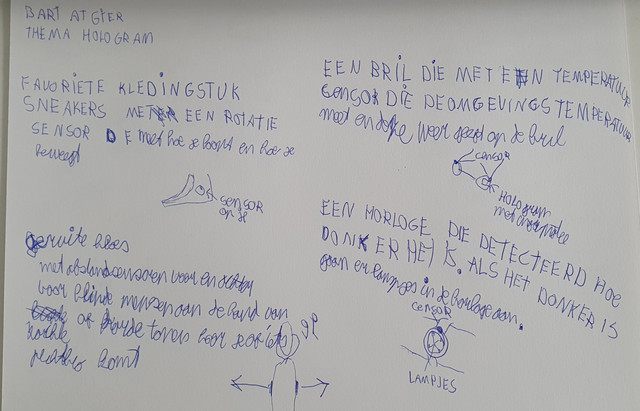 BART ATGIER
THEMA HOLOGRAM
FAVORIETE KLEDINGSTUK
SNEAKERS MET EEN ROTATIE
SENSOR DE met hoe je loopt en hoe je
beweegt
SENSOR
OP JE
geruite bloes
met afstandsensoren voor en achter
voor blinde mensen aan de hand van
zachte of harde tonen hoor je of iets
dichtbij komt
EEN BRIL DIE MET EEN TEMPERATUUR
SENSOR DIE DE OMGEVINGS TEMPERATUUR
meet en deze weer geeft op de bril
censor
Hologram
met informatie
EEN HORLOGE DIE DETECTEERD HOE
DONKER HET IS. ALS HET DONKER IS
gaan er lampjes in de horloge aan.
CENSOR
LAMPJES